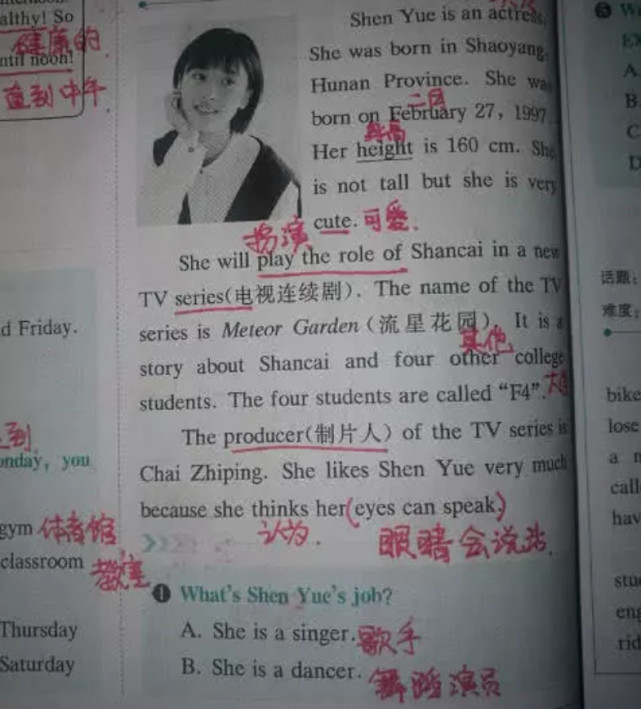 althy! So
健康的
ntil noon!
直到中午
d Friday.
onday, you
gym 体育馆
classroom 教室
Thursday
Saturday
Shen Yue is an actress.
She was born in Shaoyang,
Hunan Province. She was
二月
born on February 27, 1997.
身高
Her height is 160 cm. She
is not tall but she is very
cute. 可爱.
扮演
She will play the role of Shancai in a new
TV series(电视连续剧). The name of the TV
series is Meteor Garden (流星花园). It is a
其他
story about Shancai and four other college
students. The four students are called “F4”.
The producer(制片人) of the TV series is
Chai Zhiping. She likes Shen Yue very much
because she thinks her(eyes can speak.)
认为.
眼睛会说话.
❶ What's Shen Yue's job?
A. She is a singer. 歌手
B. She is a dancer. 舞蹈演员
❸
A.
B
C
D
话题:
难度:
bike
lose
call
hav
stu
eng
rid